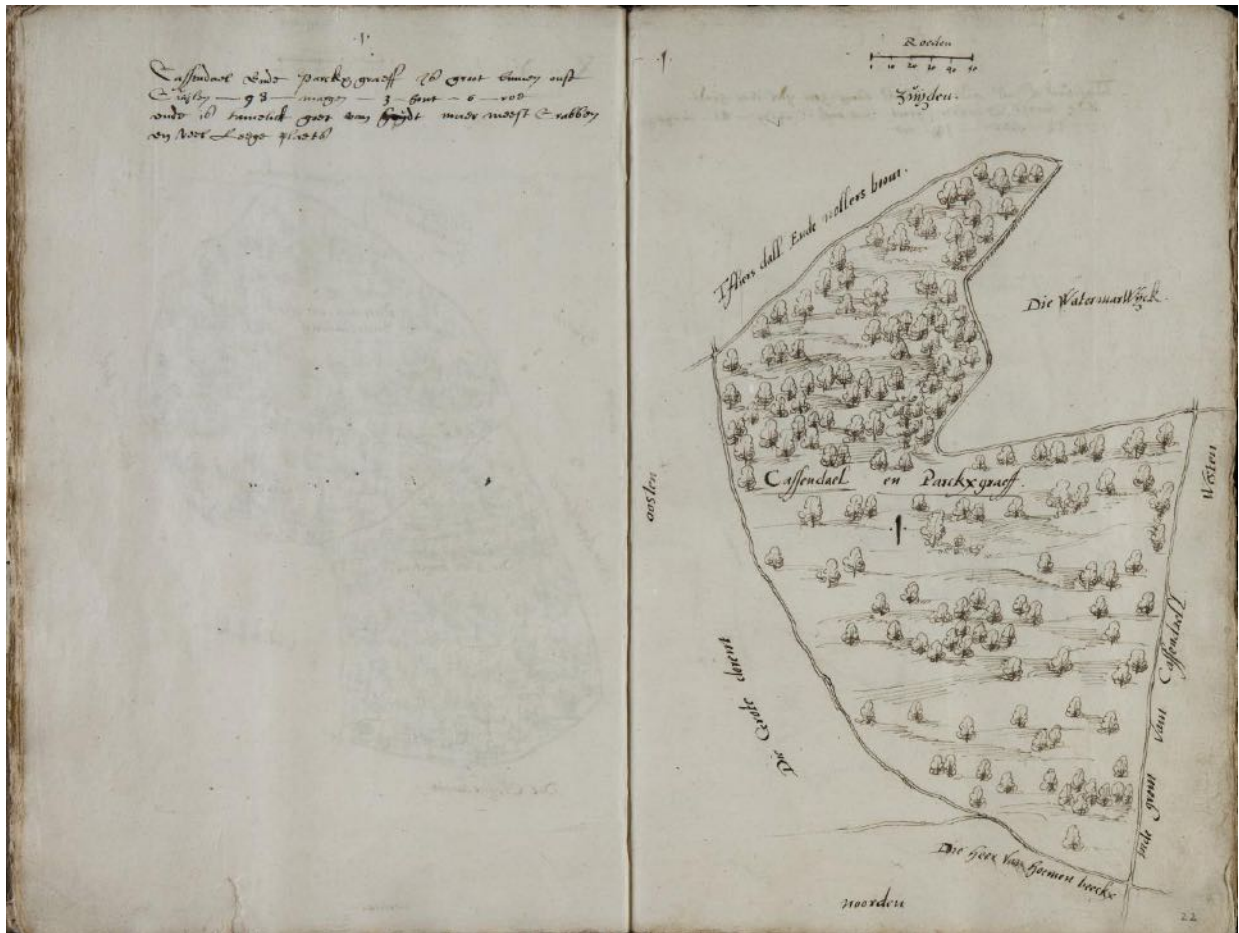 ·1·
Cassendael Ende Parckxgraeff is groot binnen onse
98 margen 3 hont 6 roe
ende is tamelick goet van maer meest Crabben
en veel Leege plaets
1
Roeden
1 10 20 30 40 50
Zuÿden.
dall Ende nollers brom.
Die WatermarWÿck.
oosten
Westen
Cassendael en Parckxgraeff.
·1·
Die Grote
inde gront Vant Cassendaell
Die Heer Van Hoemen beeckx
noorden
22